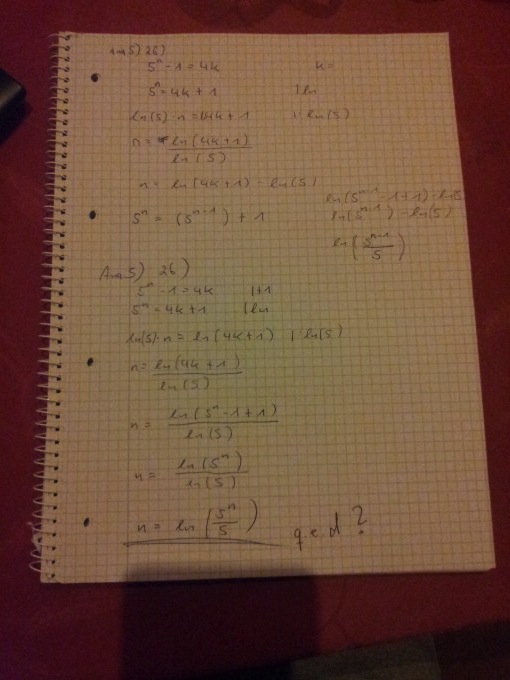 Ana 5) 26)
5^n - 1 = 4k k =
5^n = 4k + 1 | ln
ln(5) · n = ln(4k + 1 | : ln(5)
n = ln(4k+1) / ln(5)
n = ln(4k+1) - ln(5)
5^n = (5^{n-1}) + 1
ln(5^{n-1} - 1 + 1) - ln5
ln(5^{n-1}) - ln(5)
ln(5^{n-1} / 5)
Ana 5) 26)
5^n - 1 = 4k | +1
5^n = 4k + 1 | ln
ln(5) · n = ln(4k+1) | : ln(5)
n = ln(4k+1) / ln(5)
n = ln(5^n - 1 + 1) / ln(5)
n = ln(5^n) / ln(5)
n = ln(5^n / 5) q.e.d ?